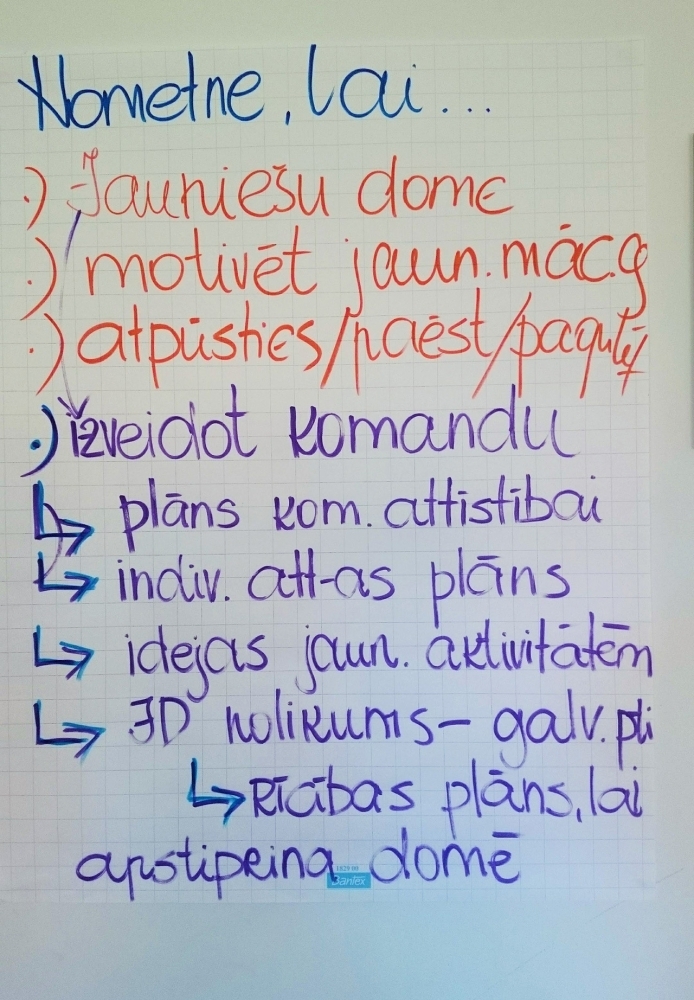 Nometne, lai...
·) Jauniešu dome
·) motivēt jaun. māc.g
·) atpūsties/paēst/pagulēt
·) izveidot komandu
↳ plāns kom. attīstībai
↳ indiv. att-as plāns
↳ idejas jaun. aktivitātēm
↳ JD nolikums - galv. pkti
↳ Rīcības plāns, lai
apstiprina domē
Bantex